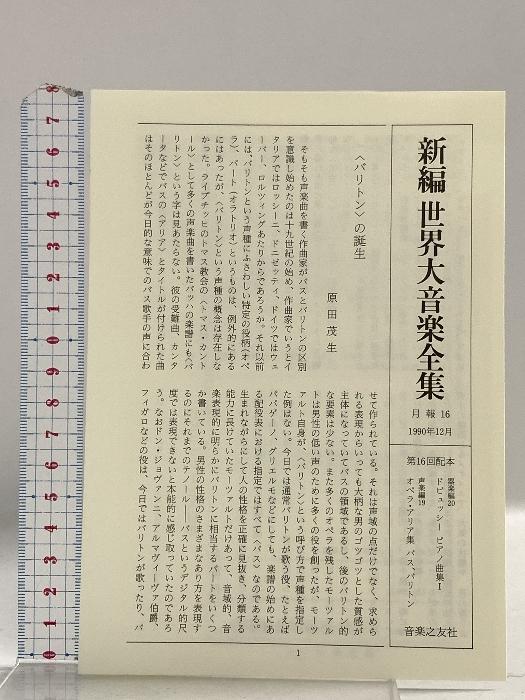 新編 世界大音楽全集
月報 16
1990年12月
第16回配本
器楽編20
ドビュッシー ピアノ曲集 I
声楽編19
オペラ・アリア集 バス、バリトン
音楽之友社
〈バリトン〉の誕生
原田茂生
そもそも声楽曲を書く作曲家がバスとバリトンの区別
を意識し始めたのは十九世紀の始め、作曲家でいうとイ
タリアではロッシーニ、ドニゼッティ、ドイツではウェ
ーバー、ロルツィングあたりからであろうか。それ以前
には、バリトンという声種にふさわしい特定の役柄（オペ
ラ）、パート（オラトリオ）というものは、例外的にある
にはあったが、〈バリトン〉という声種の概念は存在しな
かった。ライプチッヒのトマス教会の〈トマス・カント
ール〉として多くの声楽曲を書いたバッハの楽譜にも〈バ
リトン〉という字は見あたらない。彼の受難曲、カンタ
ータなどでバスの〈アリア〉とタイトルが付けられた曲
はそのほとんどが今日的な意味でのバス歌手の声に合わ
せて作られている。それは声域の点だけでなく、求めら
れる表現からいっても大柄な男のゴツゴツとした質感が
主体になっていてバスの領域であるし、後のバリトン的
な要素は少ない。また多くのオペラを残したモーツァル
トは男性の低い声のために多くの役を創ったが、モーツ
ァルト自身が、〈バリトン〉という呼び方で声種を指定し
た例はない。今日では通常バリトンが歌う役、たとえば
パパゲーノ、グリエルモなどにしても、楽譜の始めにあ
る配役表における指定ではすべて〈バス〉なのである。
生まれながらにして人の性格を正確に見抜き、分類する
能力に長けていたモーツァルトだけあって、音域的、音
楽表現的に明らかにバリトンに相当するパートをいくつ
か書いている。男性の性格のさまざまなあり方を表現す
るのにそれまでのテノール——バスというデジタル的尺
度では表現できないと本能的に感じ取っていたのであろ
う。なおドン・ジョヴァンニ、アルマヴィーヴァ伯爵、
フィガロなどの役は、今日ではバリトンが歌ったり、バ
1
0
1
2
3
4
5
6
7
8
9
0
1
2
3
4
5
6
7
8